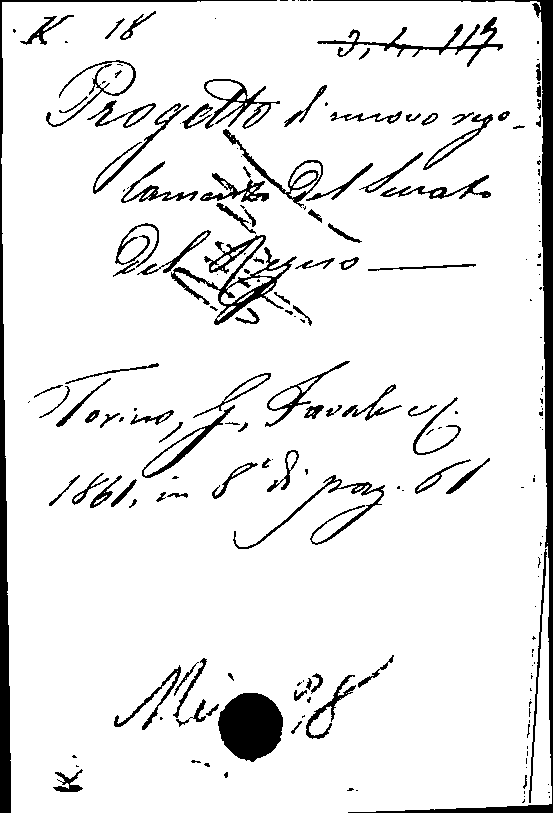 K. 18
3, 4, 117
Progetto di nuovo rego-
lamento del Senato
del Regno
Torino, G. Favale e C.
1861, in 8° di pag. 61
K.